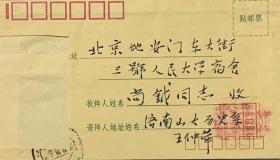 贴邮票
北京地安门东大街
址
三号人民大学宿舍
收件人姓名 尚钺同志 收
寄件人地址姓名 济南山大历史系
王仲荦